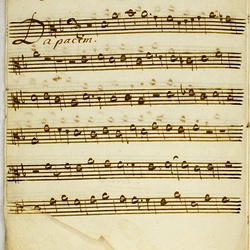 Da pacem.